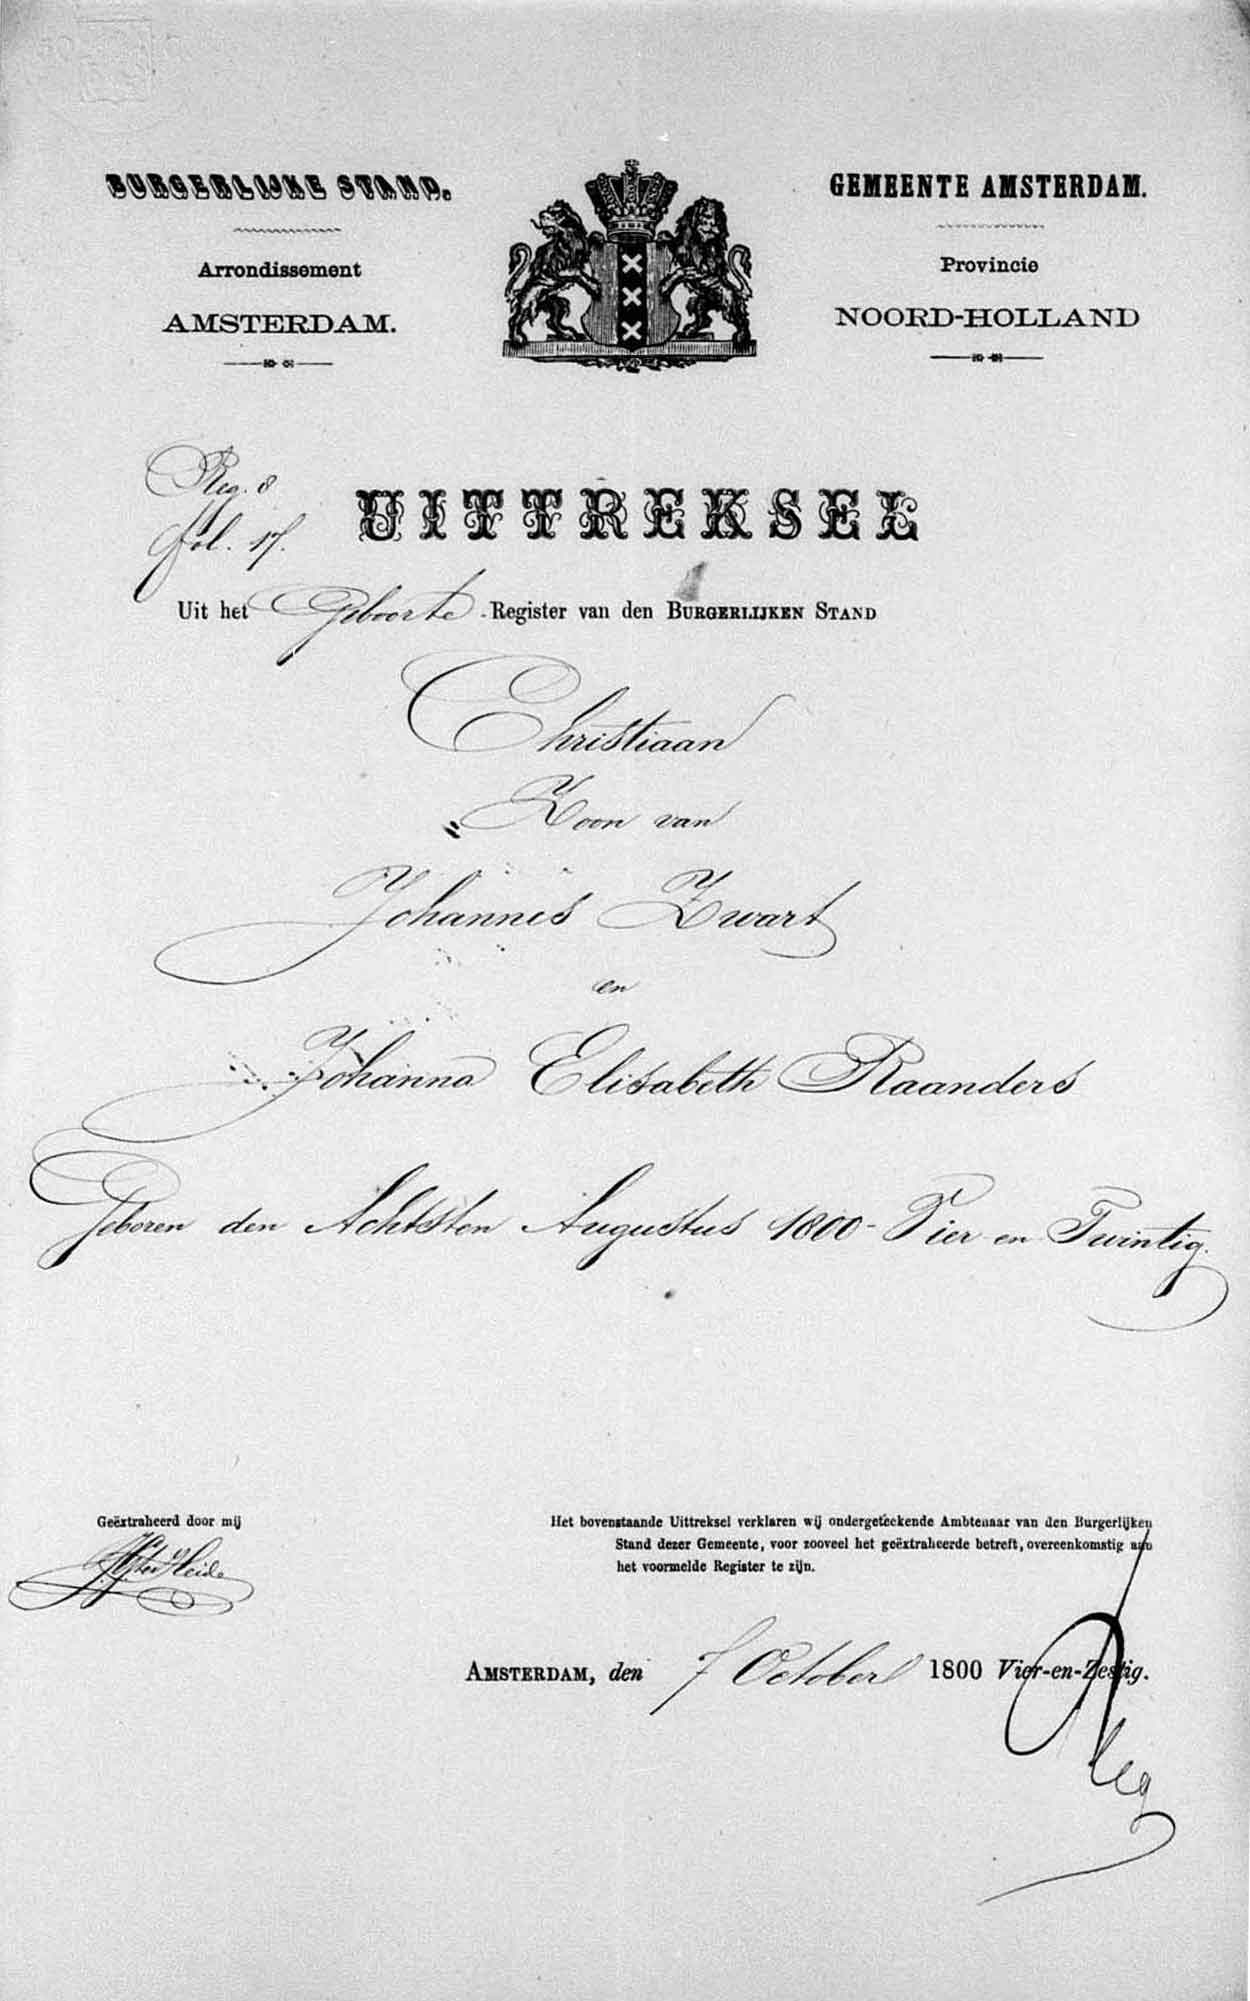 BURGERLIJKE STAND.
Arrondissement
AMSTERDAM.
GEMEENTE AMSTERDAM.
Provincie
NOORD-HOLLAND
Reg. 8
fol. 17.
UITTREKSEL
Uit het Geboorte Register van den BURGERLIJKEN STAND
Christiaan
Zoon van
Johannes Zwart
en
Johanna Elisabeth Raanders
Geboren den Achtsten Augustus 1800 - Vier en Twintig.
Geëxtraheerd door mij
Het bovenstaande Uittreksel verklaren wij ondergeteekende Ambtenaar van den Burgerlijken
Stand dezer Gemeente, voor zooveel het geëxtraheerde betreft, overeenkomstig aan
het voormelde Register te zijn.
AMSTERDAM, den 7 October 1800 Vier-en-Zestig.